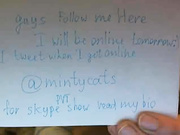 guys Follow me Here
I will be online tomorrow!
I tweet when I got online
@mintycats
PVT
for skype show read my bio